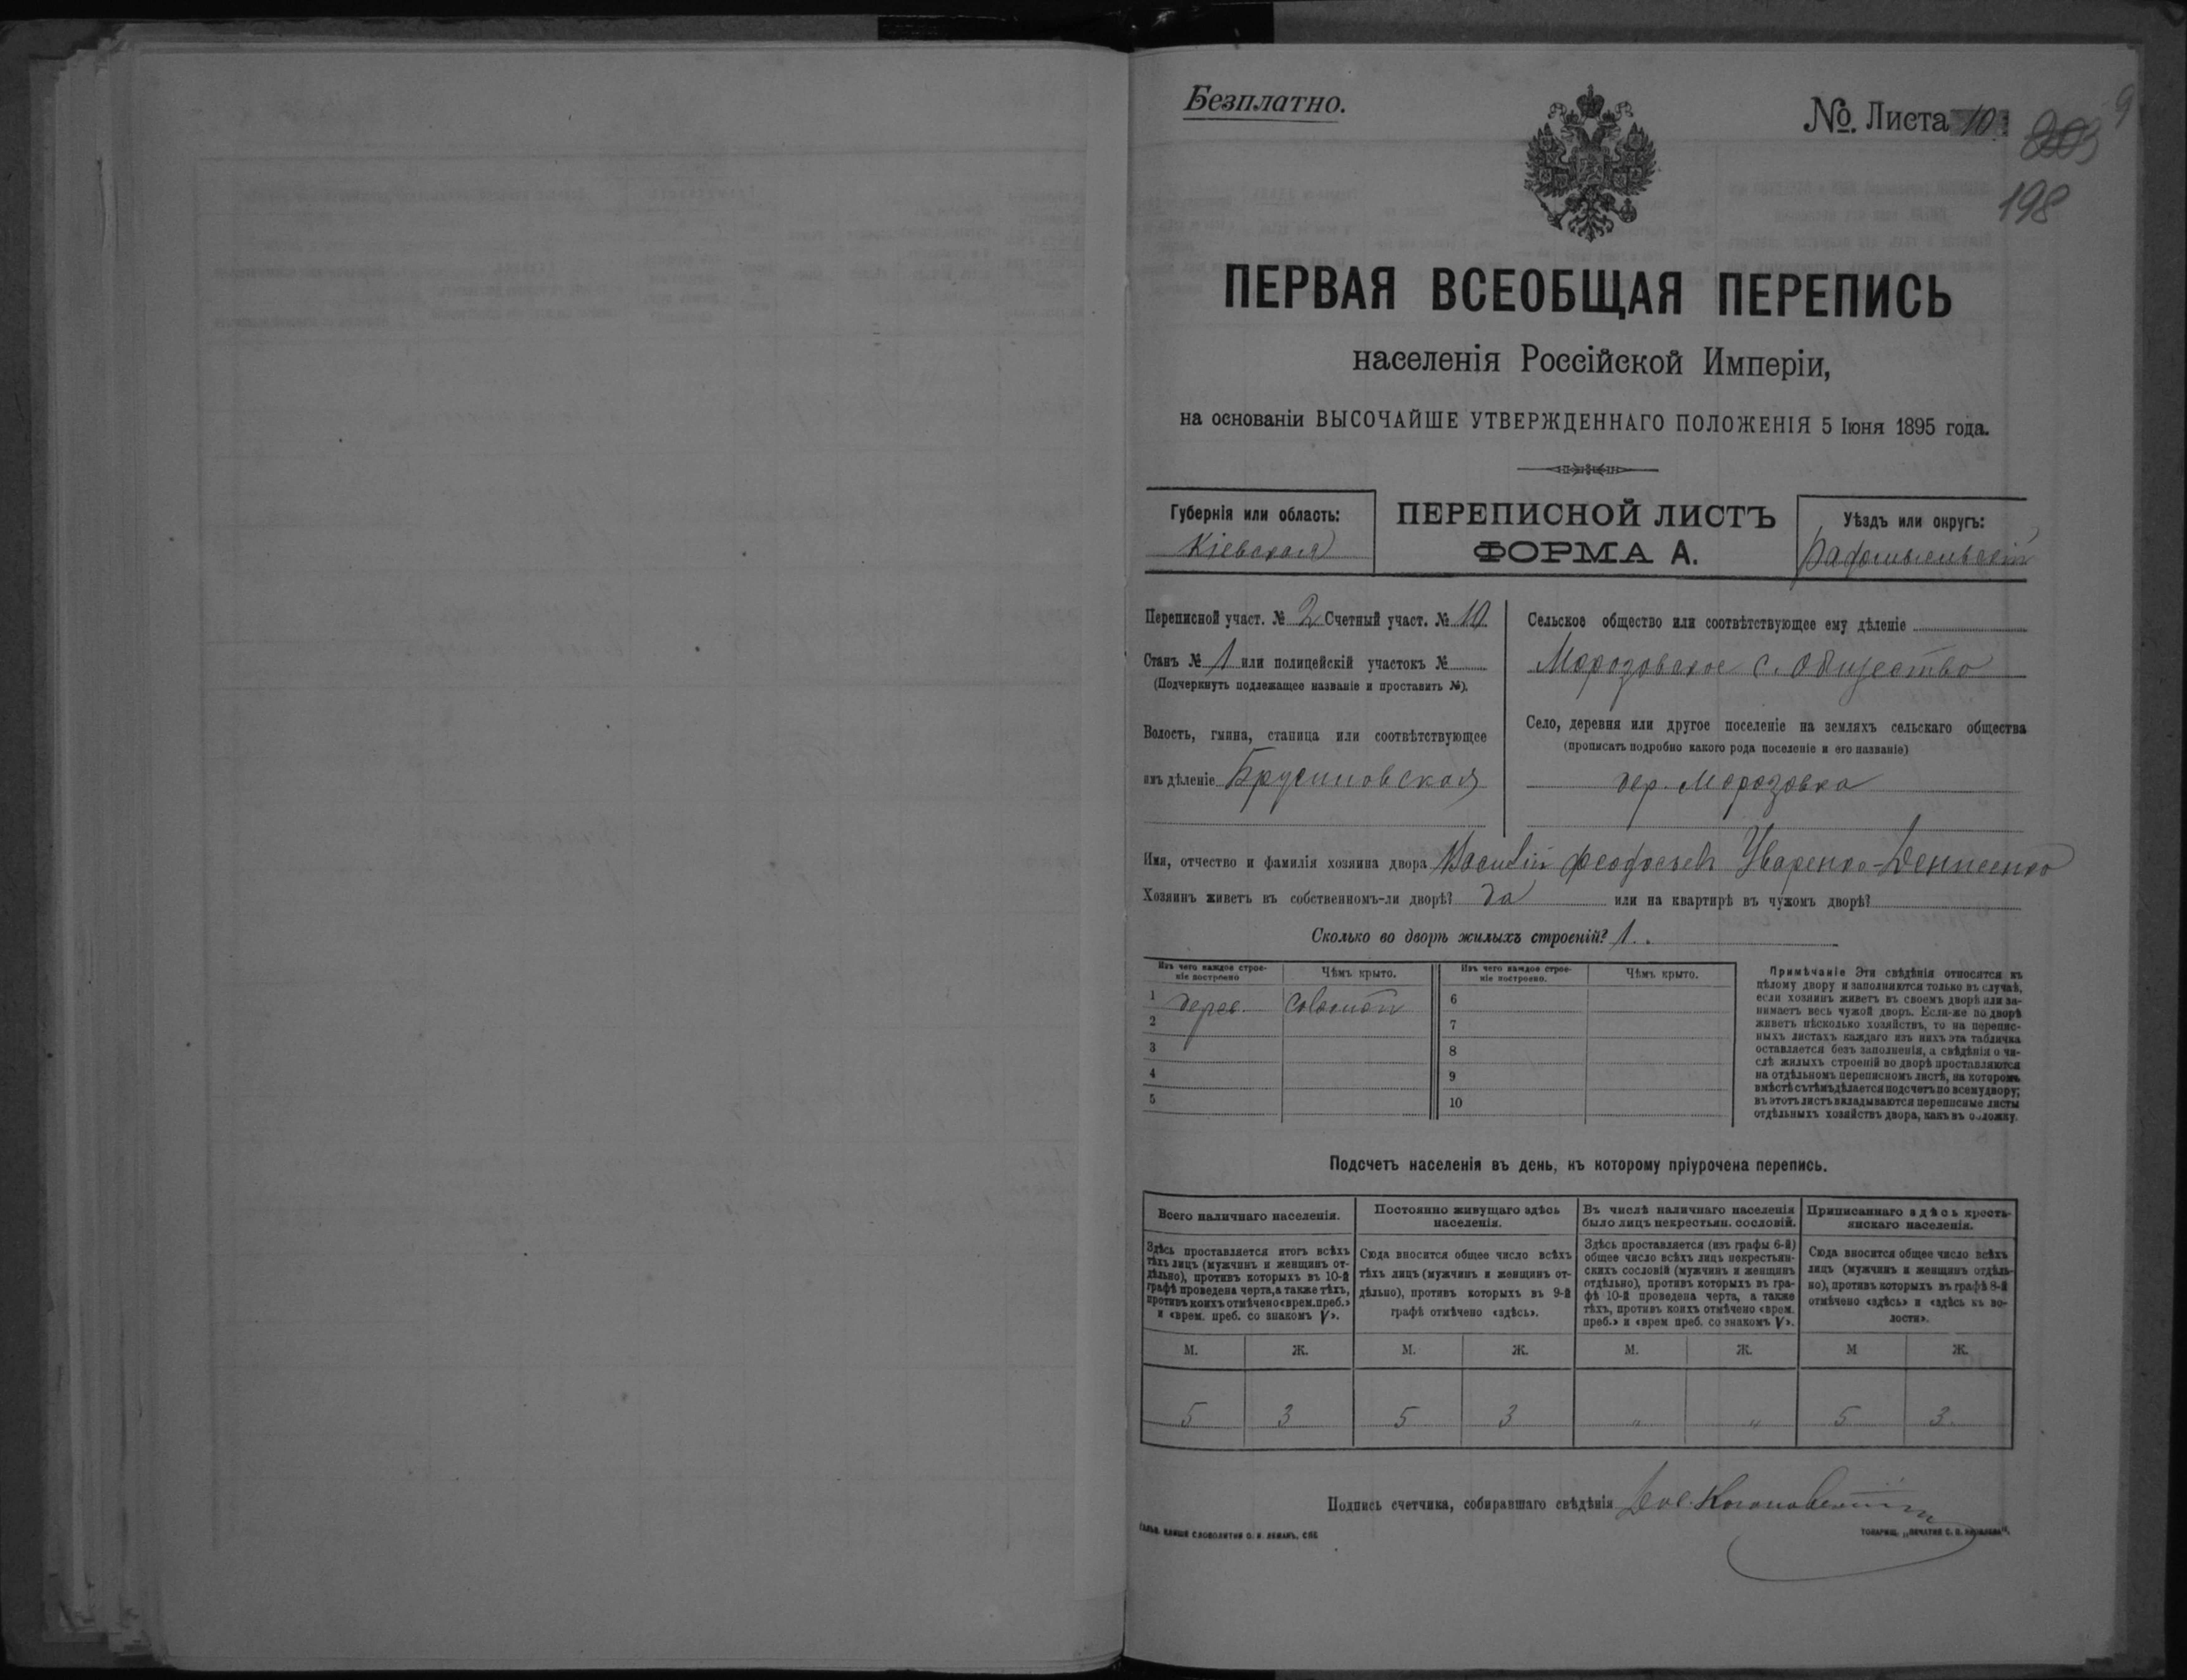 Безплатно.
№ Листа 10
203
9
198
ПЕРВАЯ ВСЕОБЩАЯ ПЕРЕПИСЬ
населенія Россійской Имперіи,
на основаніи ВЫСОЧАЙШЕ УТВЕРЖДЕННАГО ПОЛОЖЕНІЯ 5 Іюня 1895 года.
Губернія или область:
Кіевская
ПЕРЕПИСНОЙ ЛИСТЪ
ФОРМА А.
Уѣздъ или округъ:
Радомысльскій
Переписной участ. № 2 Счетный участ. № 10
Станъ № 1 или полицейскій участокъ №
(Подчеркнуть подлежащее названіе и проставить №).
Волость, гмина, станица или соотвѣтствующее
имъ дѣленіе Брусиловская
Сельское общество или соотвѣтствующее ему дѣленіе
Морозовское с. общество
Село, деревня или другое поселеніе на земляхъ сельскаго общества
(прописать подробно какого рода поселеніе и его названіе)
дер. Морозовка
Имя, отчество и фамилія хозяина двора Василій Феодосьевъ Уваренко-Денисенко
Хозяинъ живетъ въ собственномъ-ли дворѣ? да или на квартирѣ въ чужомъ дворѣ?
Сколько во дворѣ жилыхъ строеній? 1.
Изъ чего каждое строе-
ніе построено
Чѣмъ крыто.
Изъ чего каждое строе-
ніе построено.
Чѣмъ крыто.
1 дерев. соломой
2
3
4
5
6
7
8
9
10
Примѣчаніе Эти свѣдѣнія относятся къ
цѣлому двору и заполняются только въ случаѣ,
если хозяинъ живетъ въ своемъ дворѣ или за-
нимаетъ весь чужой дворъ. Если-же во дворѣ
живетъ нѣсколько хозяйствъ, то на перепис-
ныхъ листахъ каждаго изъ нихъ эта табличка
оставляется безъ заполненія, а свѣдѣнія о чи-
слѣ жилыхъ строеній во дворѣ проставляются
на отдѣльномъ переписномъ листѣ, на которомъ
вмѣстѣ съ тѣмъ дѣлается подсчетъ по всему двору;
въ этотъ листъ вкладываются переписные листы
отдѣльныхъ хозяйствъ двора, какъ въ обложку.
Подсчетъ населенія въ день, къ которому пріурочена перепись.
Всего наличнаго населенія.
Здѣсь проставляется итогъ всѣхъ
тѣхъ лицъ (мужчинъ и женщинъ от-
дѣльно), противъ которыхъ въ 10-й
графѣ проведена черта, а также тѣхъ,
противъ коихъ отмѣчено «врем. преб.»
и «врем. преб. со знакомъ V».
Постоянно живущаго здѣсь
населенія.
Сюда вносится общее число всѣхъ
тѣхъ лицъ (мужчинъ и женщинъ от-
дѣльно), противъ которыхъ въ 9-й
графѣ отмѣчено «здѣсь».
Въ числѣ наличнаго населенія
было лицъ некрестьян. сословій.
Здѣсь проставляется (изъ графы 6-й)
общее число всѣхъ лицъ некрестьян-
скихъ сословій (мужчинъ и женщинъ
отдѣльно), противъ которыхъ въ гра-
фѣ 10-й проведена черта, а также
тѣхъ, противъ коихъ отмѣчено «врем.
преб.» и «врем преб. со знакомъ V».
Приписаннаго здѣсь кресть-
янскаго населенія.
Сюда вносится общее число всѣхъ
лицъ (мужчинъ и женщинъ отдѣль-
но), противъ которыхъ въ графѣ 8-й
отмѣчено «здѣсь» и «здѣсь къ во-
лости».
М. Ж. М. Ж. М. Ж. М Ж.
5 3 5 3 " " 5 3.
Подпись счетчика, собиравшаго свѣдѣнія
ГАЛЬВ. КЛИШЕ СЛОВОЛИТНИ О. И. ЛЕМАНЪ, СПБ
ТОВАРИЩ. „ПЕЧАТНЯ С. П. ЯКОВЛЕВА".